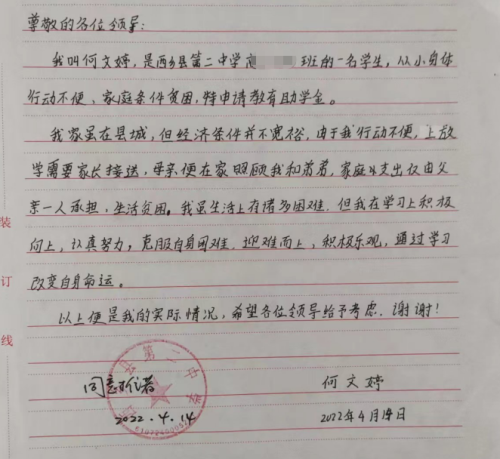 尊敬的各位领导：
我叫何文婷，是西乡县第二中学高 班的一名学生，从小身体
行动不便、家庭条件贫困，特申请教育助学金。
我家虽在县城，但经济条件并不宽裕，由于我行动不便，上放
学需要家长接送，母亲便在家照顾我和弟弟，家庭支出仅由父
亲一人承担，生活贫困。我虽生活上有诸多困难，但我在学习上积极
向上，认真努力，克服自身困难，迎难而上，积极乐观，通过学习
改变自身命运。
以上便是我的实际情况，希望各位领导给予考虑，谢谢！
装
订
线
县第二中学
同意
2022.4.14
何文婷
2022年4月14日